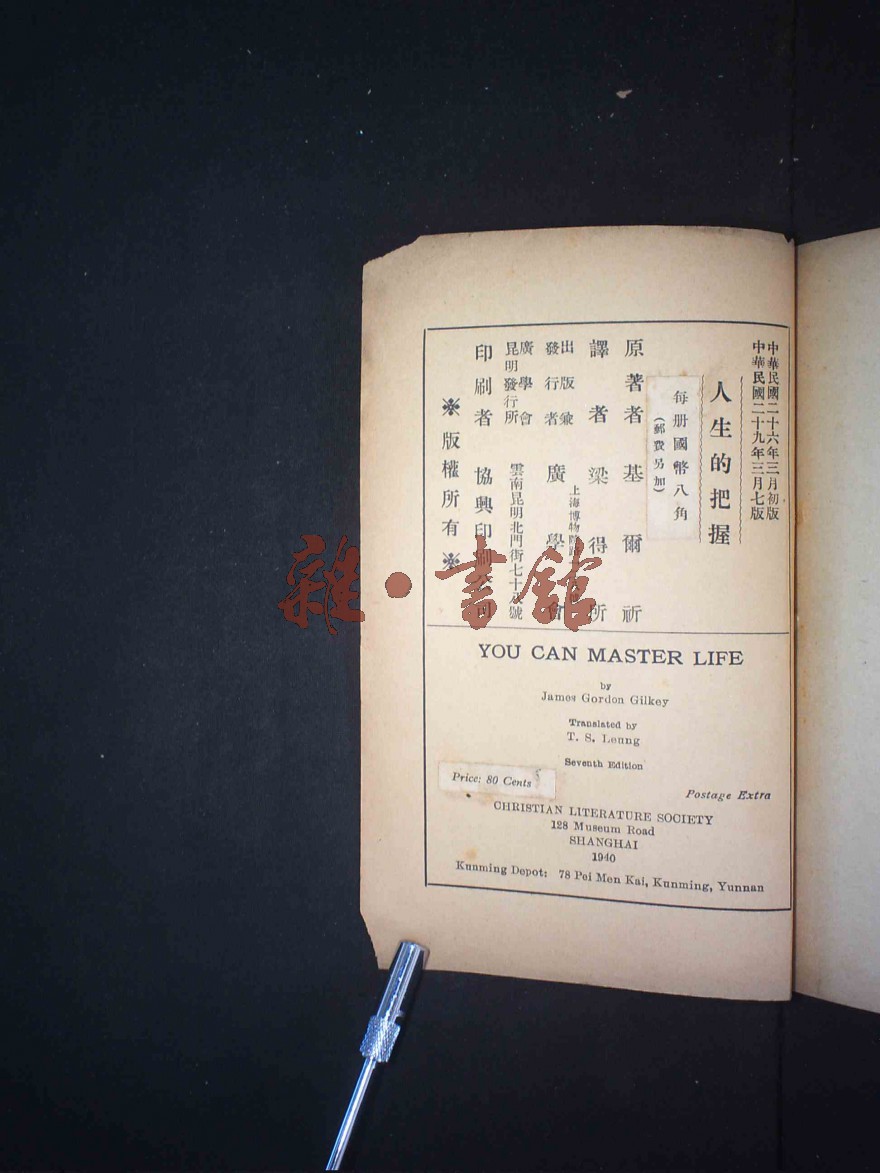 中華民國二十六年三月初版
中華民國二十九年三月七版
人生的把握
每册國幣八角
(郵費另加)
原著者 基爾祈
譯者 梁得所
出版兼
發行者
上海博物院路
廣學會
廣學會
昆明發行所
雲南昆明北門街七十八號
印刷者 協興印刷公司
※版權所有※
YOU CAN MASTER LIFE
by
James Gordon Gilkey
Translated by
T. S. Leung
Seventh Edition
Price: 80 Cents
Postage Extra
CHRISTIAN LITERATURE SOCIETY
128 Museum Road
SHANGHAI
1940
Kunming Depot: 78 Pei Men Kai, Kunming, Yunnan
雜·書館